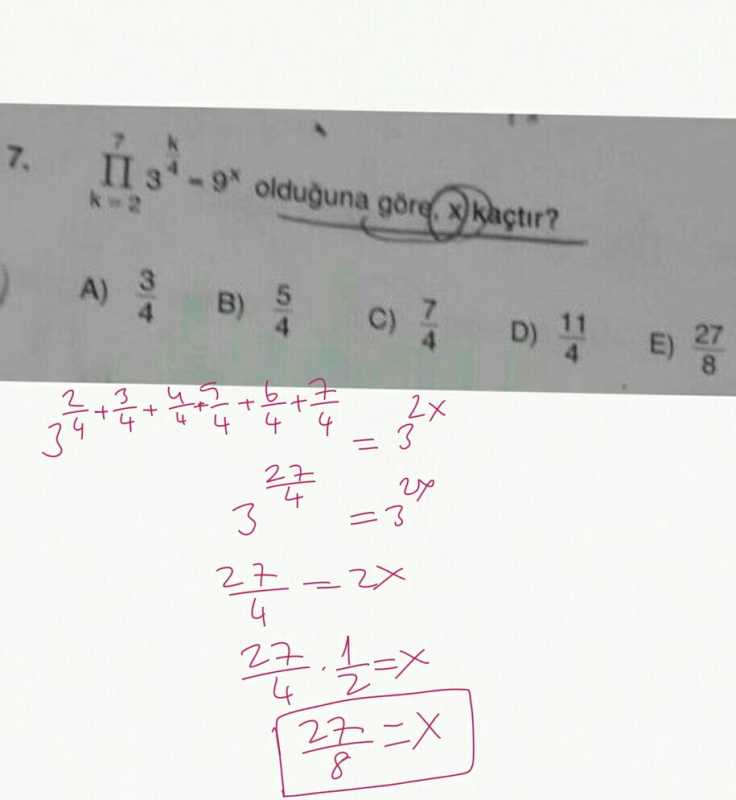 7. 7
∏ 3^(k/4) = 9^x olduğuna göre, x kaçtır?
k = 2
A) 3/4 B) 5/4 C) 7/4 D) 11/4 E) 27/8
3^(2/4 + 3/4 + 4/4 + 5/4 + 6/4 + 7/4) = 3^(2x)
3^(27/4) = 3^(2x)
27/4 = 2x
27/4 . 1/2 = x
27/8 = x